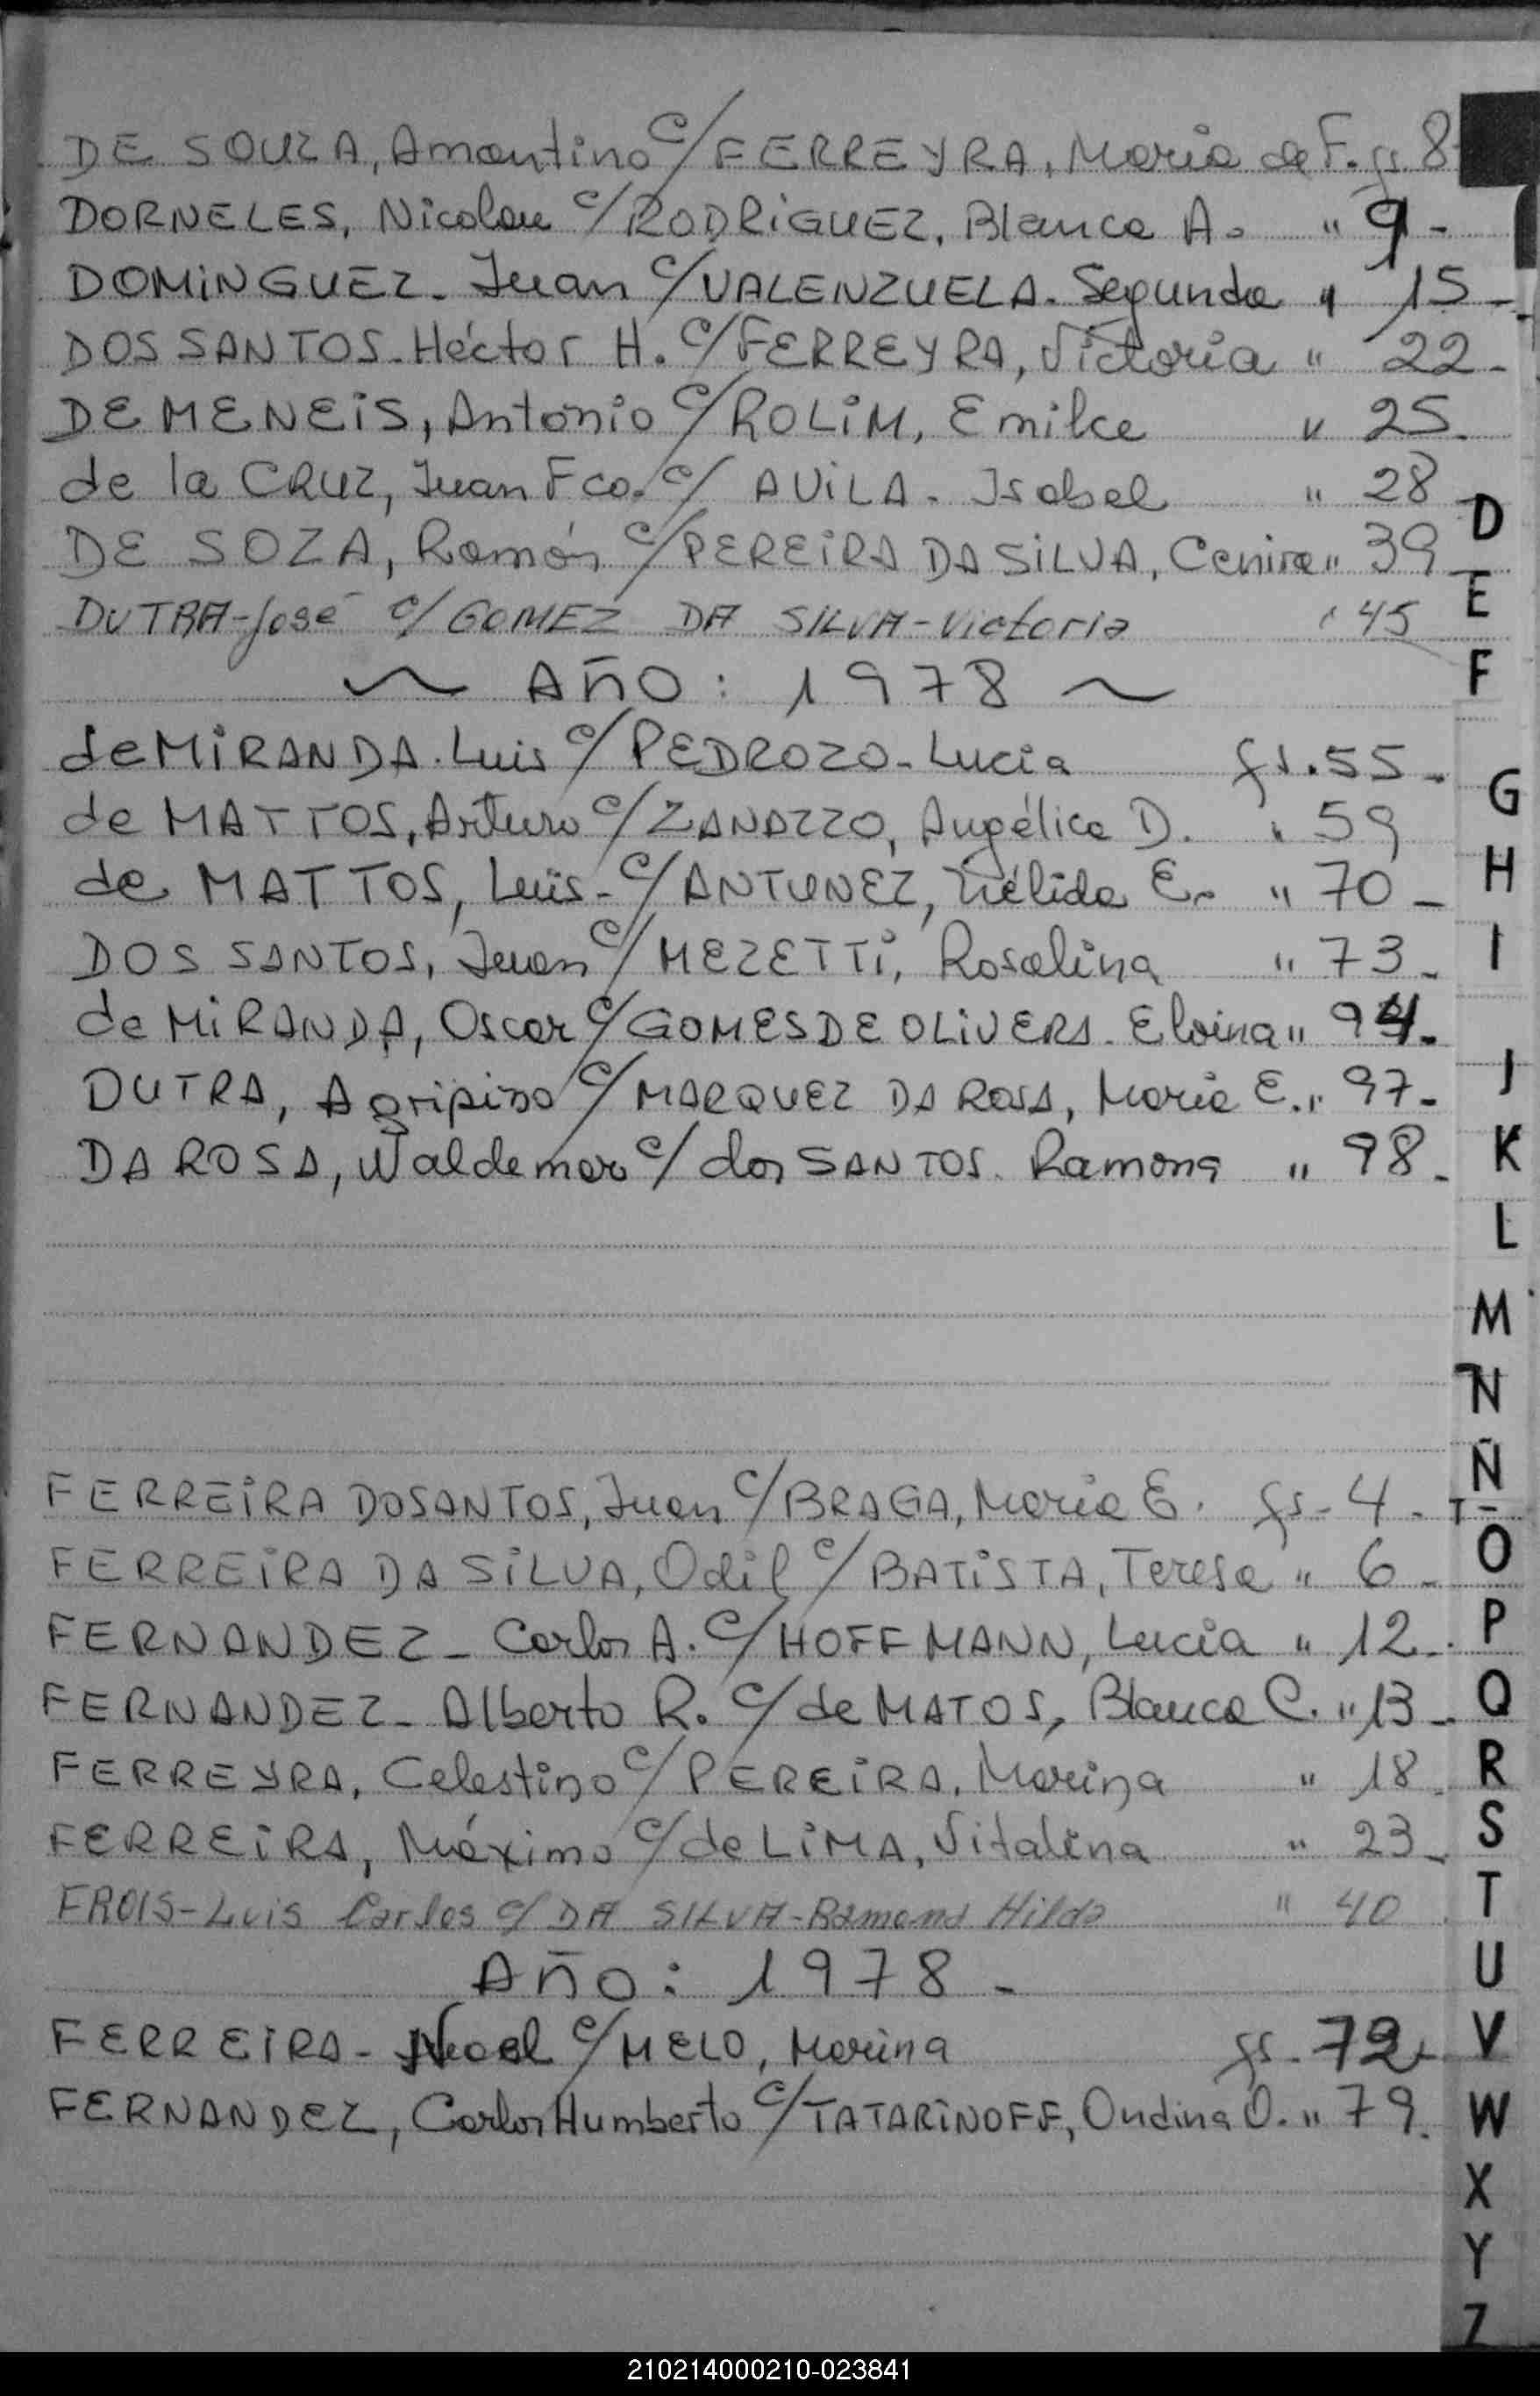 DE SOUZA, Amantino c/ FERREYRA, Maria de F. fs. 8
DORNELES, Nicolau c/ RODRIGUEZ, Blanca A. " 9-
DOMINGUEZ- Juan c/ VALENZUELA- Segunda " 15-
DOS SANTOS- Héctor H. c/ FERREYRA, Victoria " 22-
DE MENEIS, Antonio c/ ROLIM, Emilce " 25.
de la CRUZ, Juan Fco. c/ AVILA- Isabel " 28
DE SOZA, Ramón c/ PEREIRA DA SILVA, Cenira " 39
DUTRA-José c/ GOMEZ DA SILVA-Victoria " 45
~ AÑO: 1978 ~
de MIRANDA. Luis c/ PEDROZO- Lucia fs. 55-
de MATTOS, Arturo c/ ZANAZZO, Angélica D. " 59
de MATTOS, Luis- c/ ANTUNEZ, Nélida E. " 70-
DOS SANTOS, Juan c/ MEZETTI, Rosalina " 73-
de MIRANDA, Oscar c/ GOMES DE OLIVERA- Eloina " 94.
DUTRA, Agripino c/ MARQUEZ DA ROSA, Maria E. " 97-
DA ROSA, Waldemar c/ dos SANTOS. Ramona " 98-
FERREIRA DOSANTOS, Juan c/ BRAGA, Maria E. fs- 4-
FERREIRA DA SILVA, Odil c/ BATISTA, Teresa " 6-
FERNANDEZ- Carlos A. c/ HOFFMANN, Lucia " 12-
FERNANDEZ- Alberto R. c/ de MATOS, Blanca C. " 13-
FERREYRA, Celestino c/ PEREIRA, Marina " 18.
FERREIRA, Máximo c/ de LIMA, Vitalina " 23-
FROIS-Luis Carlos c/ DA SILVA-Ramona Hilda " 40
AÑO: 1978-
FERREIRA- c/ MELO, Marina fs- 72-
FERNANDEZ, Carlos Humberto c/ TATARINOFF, Ondina O. " 79.
D
E
F
G
H
I
J
K
L
M
N
Ñ
O
P
Q
R
S
T
U
V
W
X
Y
Z
210214000210-023841